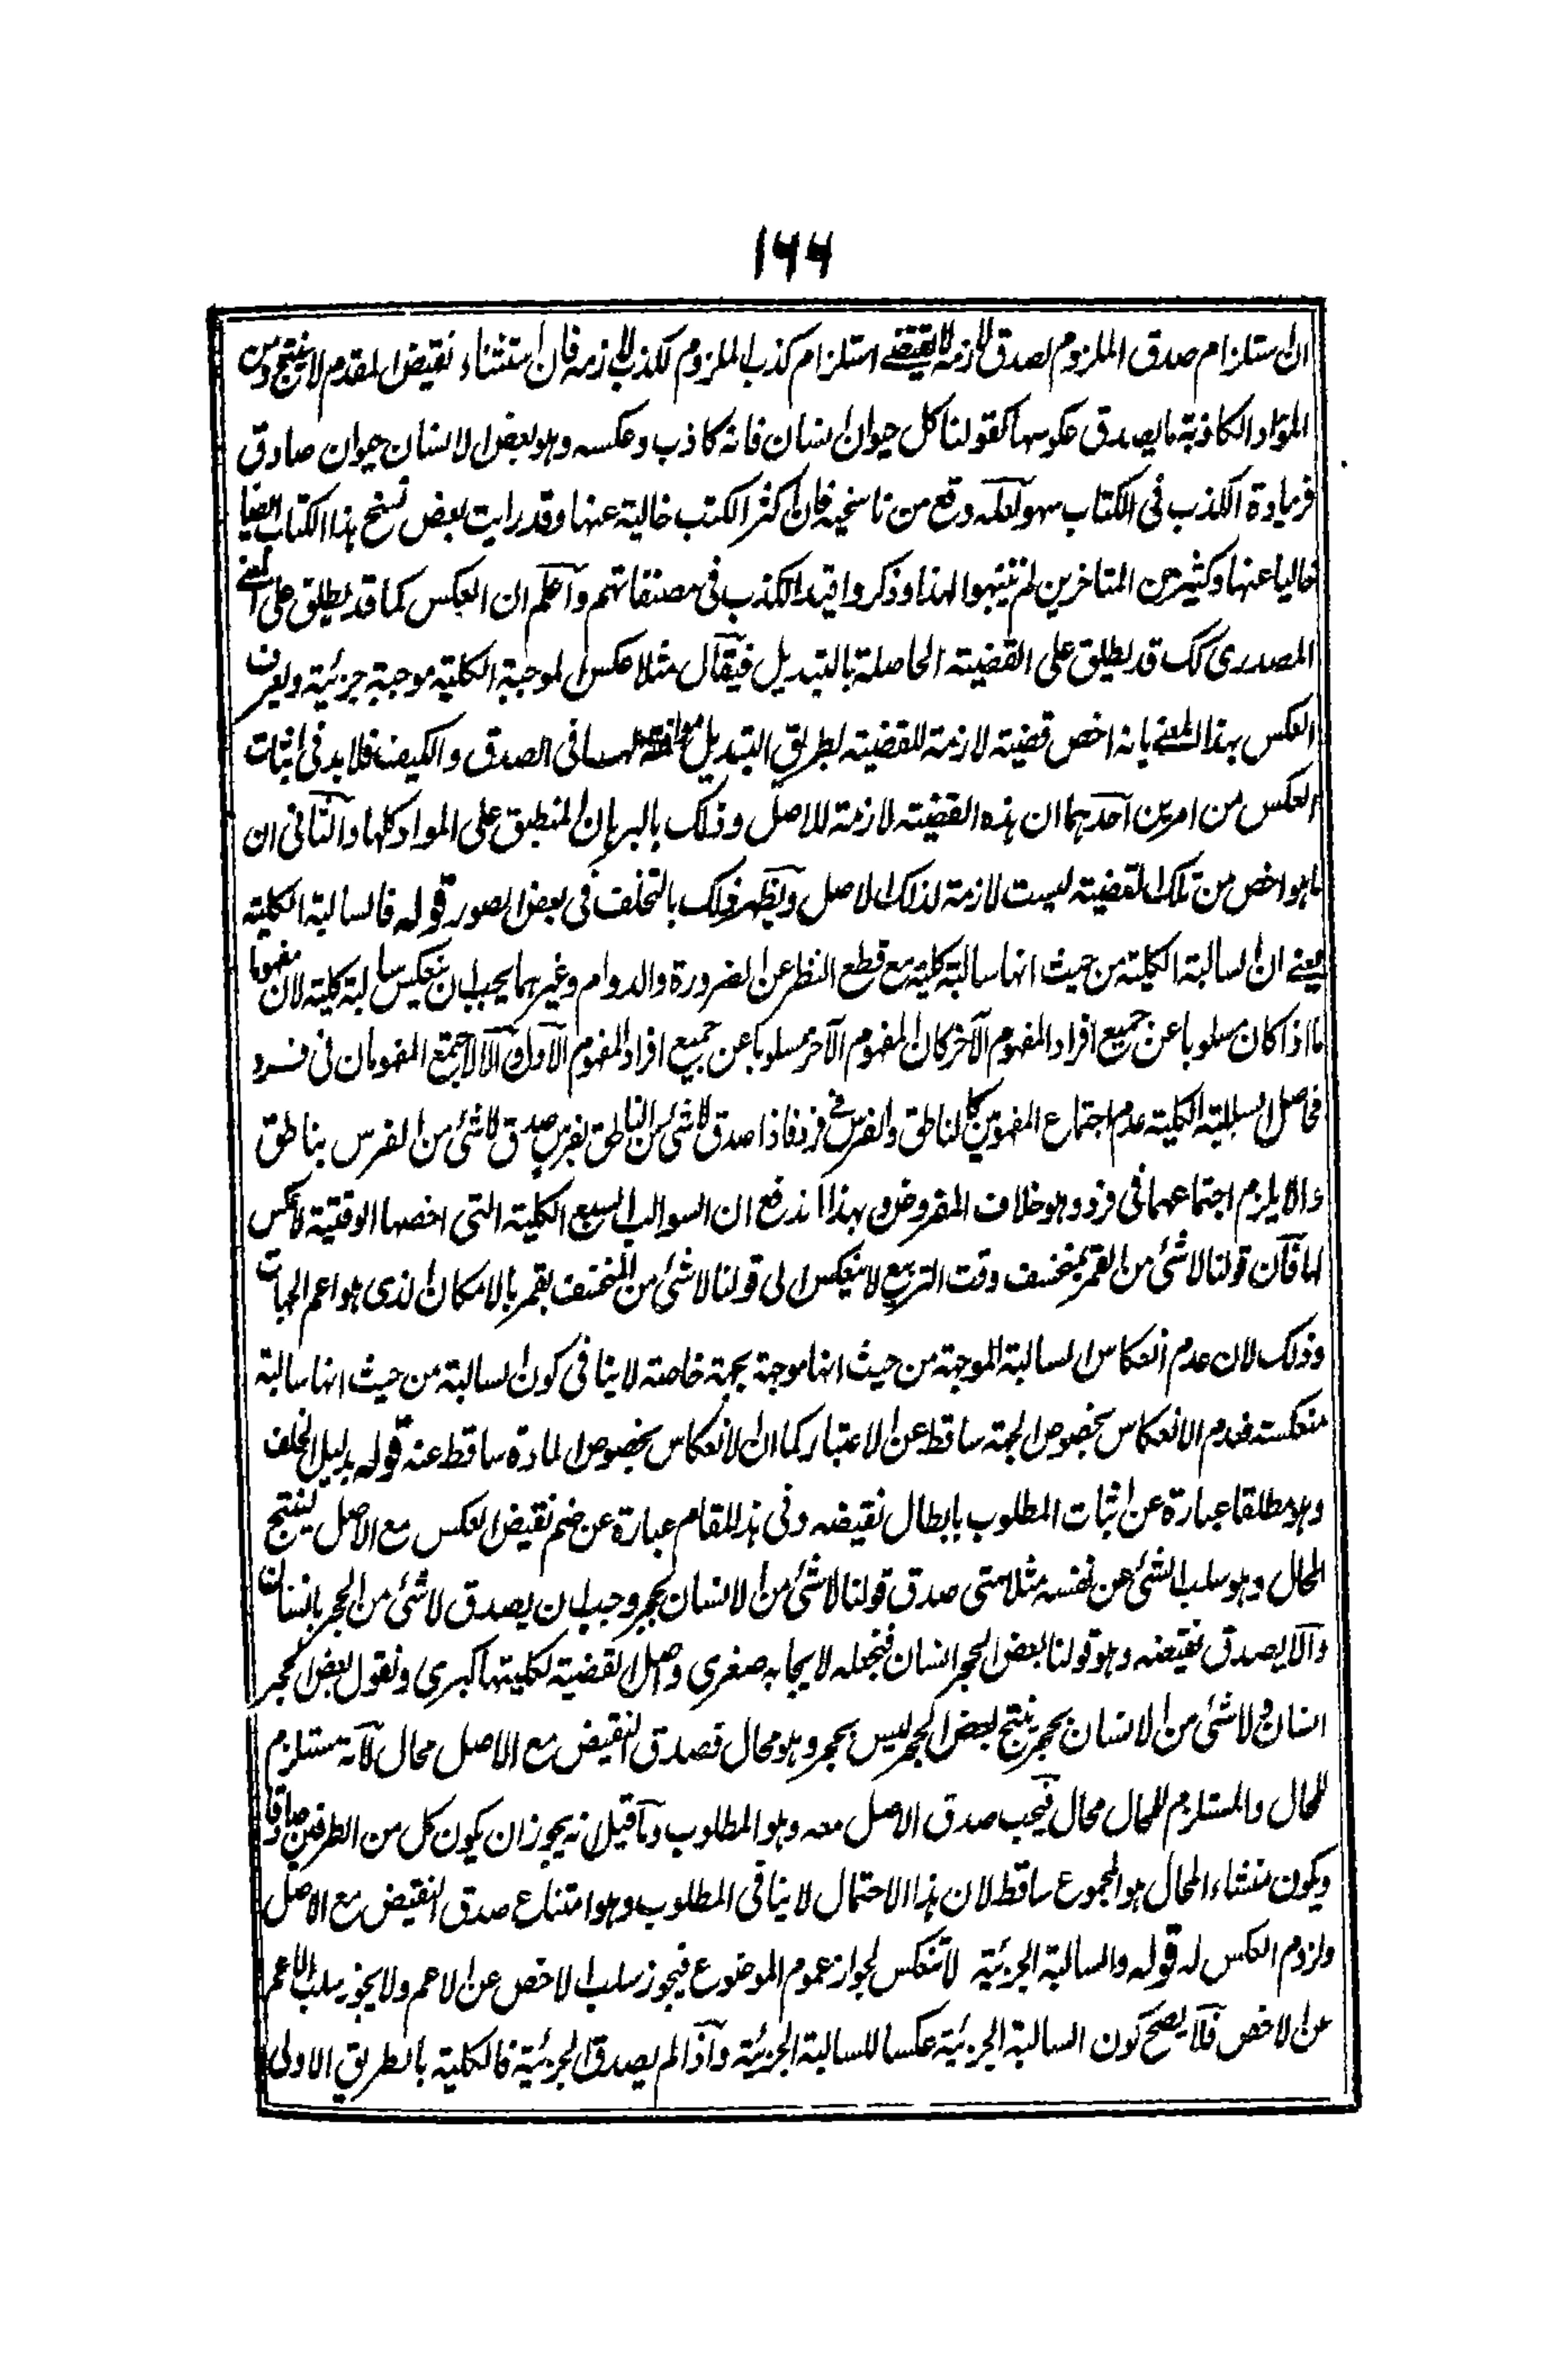 ۱۶۶
ان استلزام صدق الملزوم لصدق لازمه لا يقتضے استلزام كذب الملزوم لكذب لازمه فان استثناء نقيض المقدم لا ينتج ومن
المواد الكاذبة ما يصدق عكوسها كقولنا كل حيوان انسان فانه كاذب وعكسه وهو بعض الانسان حيوان صادق
فزيادة الكذب فى الكتاب سهو لعله وقع من ناسخيه فان اكثر الكتب خالية عنها وقد رايت بعض نسخ هذا الكتاب ايضا
خاليا عنها وكثير من المتاخرين لم يتنبهوا لهذا وذكروا قيد الكذب فى مصنفاتهم واعلم ان العكس كما قد يطلق على المعنے
المصدرى كك قد يطلق على القضية الحاصلة بالتبديل فيقال مثلا عكس الموجبة الكلية موجبة جزئية ويعرف
العكس بهذا المعنے بانه اخص قضية لازمة للقضية بطريق التبديل موافقة لها فى الصدق والكيف فلا بد فى اثبات
العكس من امرين احدهما ان هذه القضية لازمة للاصل وذلك بالبرهان المنطبق على المواد كلها والثانى ان
ما هو اخص من تلك القضية ليست لازمة لذلك الاصل ويظهر ذلك بالتخلف فى بعض الصور قوله فالسالبة الكلية
يعنے ان السالبة الكلية من حيث انها سالبة كلية مع قطع النظر عن الضرورة والدوام وغيرهما يجب ان ينعكس سالبة كلية لان مفهوما
ما اذا كان مسلوبا عن جميع افراد المفهوم الآخر كان المفهوم الآخر مسلوبا عن جميع افراد المفهوم الاول والا لاجتمع المفهومان فى فرد
فحاصل السالبة الكلية عدم اجتماع المفهومين كالناطق والفرس فے فرد فاذا صدق لا شئ من الناطق بفرس صدق لا شئ من الفرس بناطق
والا يلزم اجتماعهما فى فرد وهو خلاف المفروض وبهذا اندفع ان السوالب السبع الكلية التى اخصها الوقتية لا عكس
لها فان قولنا لا شئ من القمر بمنخسف وقت التربيع لا ينعكس الى قولنا لا شئ من المنخسف بقمر بالامكان الذى هو اعم الجهات
وذلك لان عدم انعكاس السالبة الموجهة من حيث انها موجهة بجهة خاصة لا ينافى كون السالبة من حيث انها سالبة
منعكسة فعدم الانعكاس بخصوص الجهة ساقط عن الاعتبار كما ان الانعكاس بخصوص المادة ساقط عنه قوله بدليل الخلف
وهو مطلقا عبارة عن اثبات المطلوب بابطال نقيضه وفى هذا المقام عبارة عن ضم نقيض العكس مع الاصل لينتج
المحال وهو سلب الشئ عن نفسه مثلا متى صدق قولنا لا شئ من الانسان بحجر وجب ان يصدق لا شئ من الحجر بانسان
والا يصدق نقيضه وهو قولنا بعض الحجر انسان فنجعله لايجابه صغرى واصل القضية لكليتها كبرى ونقول بعض الحجر
انسان ولا شئ من الانسان بحجر ينتج بعض الحجر ليس بحجر وهو محال فصدق النقيض مع الاصل محال لانه مستلزم
للمحال والمستلزم للمحال محال فيجب صدق الاصل معه وهو المطلوب وما قيل انه يجوز ان يكون كل من الطرفين صادقا
ويكون منشاء المحال هو المجموع ساقط لان هذا الاحتمال لا ينافى المطلوب وهو امتناع صدق النقيض مع الاصل
ولزوم العكس له قوله والسالبة الجزئية لا تنعكس لجواز عموم الموضوع فيجوز سلب الاخص عن الاعم ولا يجوز سلب الاعم
عن الاخص فلا يصح كون السالبة الجزئية عكسا للسالبة الجزئية واذا لم يصدق الجزئية فالكلية بالطريق الاولى